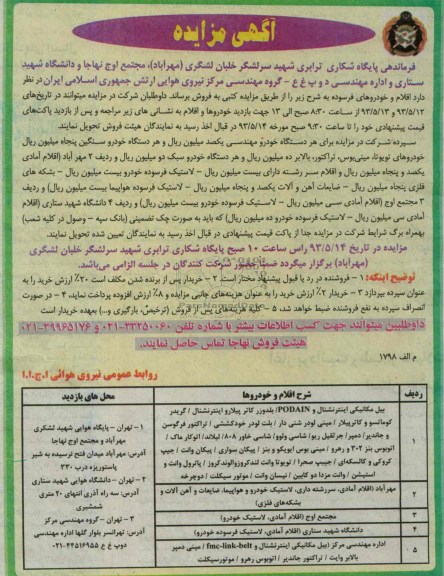 آگهی مزایده
فرماندهی پایگاه شکاری ترابری شهید سرلشگر خلبان لشگری (مهرآباد)، مجتمع اوج نهاجا و دانشگاه شهید
ستاری و اداره مهندسی د و پ غ ع - گروه مهندسی مرکز نیروی هوایی ارتش جمهوری اسلامی ایران در نظر
دارد اقلام و خودروهای فرسوده به شرح زیر را از طریق مزایده کتبی به فروش برساند. داوطلبان شرکت در مزایده میتوانند در تاریخ‌های
۹۳/۵/۱۲ و ۹۳/۵/۱۳ از ساعت ۸:۳۰ صبح الی ۱۳ جهت بازدید خودروها و اقلام به نشانی های زیر مراجعه و پس از بازدید پاکت‌های
قیمت پیشنهادی خود را تا ساعت ۹:۳۰ صبح مورخه ۹۳/۵/۱۴ در قبال اخذ رسید به نمایندگان هیئت فروش تحویل نمایند.
سپرده شرکت در مزایده برای هر دستگاه خودرو مهندسی یکصد میلیون ریال و هر دستگاه خودرو سنگین پنجاه میلیون ریال
خودروهای تویوتا، مینی‌بوس، تراکتور، بالابر ده میلیون ریال و هر دستگاه خودرو سبک دو میلیون ریال و ردیف ۲ مهر آباد (اقلام آمادی
یکصد و پنجاه میلیون ریال و اقلام سر رشته دارای بیست میلیون ریال - لاستیک فرسوده خودرو بیست میلیون ریال - بشکه های
فلزی پنجاه میلیون ریال - ضایعات آهن و آلات یکصد و پنجاه میلیون ریال - لاستیک فرسوده هواپیما بیست میلیون ریال) و ردیف
۳ مجتمع اوج (اقلام آمادی سی میلیون ریال - لاستیک فرسوده خودرو بیست میلیون ریال) و ردیف ۴ دانشگاه شهید ستاری (اقلام
آمادی سی میلیون ریال - لاستیک فرسوده خودرو ده میلیون ریال) که باید به صورت چک تضمینی (بانک سپه - وصول در کلیه شعب)
بهمراه برگ شرایط شرکت در مزایده جدا از پاکت قیمت پیشنهادی در قبال اخذ رسید به نمایندگان تعیین شده تحویل نمایند.
مزایده در تاریخ ۹۳/۵/۱۴ راس ساعت ۱۰ صبح پایگاه شکاری ترابری شهید سرلشگر خلبان لشگری
(مهرآباد) برگزار میگردد ضمناً حضور شرکت کنندگان در جلسه الزامی می‌باشد.
توضیح اینکه: ۱ - فروشنده در رد یا قبول پیشنهاد مختار است ۲ - خریدار پس از برنده شدن مکلف است ۲۰٪ ارزش خرید را به
عنوان سپرده بپردازد ۳ - خریدار ۲٪ ارزش خرید را به عنوان هزینه‌های جانبی مزایده و ۸٪ ارزش افزوده پرداخت نماید، ۴ - در صورت
انصراف سپرده به نفع فروشنده ضبط خواهد شد، ۵ - کلیه هزینه‌های پس از فروش (ترخیص، بارگیری و...) بعهده خریدار است
داوطلبین میتوانند جهت کسب اطلاعات بیشتر با شماره تلفن ۳۳۳۵۰۰۶۰-۰۲۱ و ۳۹۹۶۵۱۷۶-۰۲۱
هیئت فروش نهاجا تماس حاصل نمایند.
م الف ۱۷۹۸
روابط عمومی نیروی هوائی ا.ج.ا.ا
ردیف شرح اقلام و خودروها محل های بازدید
۱ بیل مکانیکی اینترنشنال و PODAIN/ بلدوزر کاتر پیلار و اینترنشنال / گریدر
کوماتسو و کاترپیلار / مینی لودر شنی دار / بلت لودر خودکششی / تراکتور فرگوسن
و جاندیر/ دمپر/ جرثقیل ریو/ شاسی ولوو/ شاسی خاور ۸۰۸/ لیلاند/ اتوکار ماک /
اتوبوس بنز ۳۰۲ و رهرو / مینی بوس ایویکو و بنز / پیکان سواری / پیکان وانت / جیپ
کروکی و کالسکه‌ای / جیپ صحرا / تویوتا وانت لندکروزوالوندکروز / پاترول وانت و
استیشن / وانت مزدا دو کابین / نیسان وانت / موتور سیکلت / دوچرخه
۲ مهرآباد (اقلام آمادی، سررشته داری، لاستیک خودرو و هواپیما، ضایعات و آهن آلات و
بشکه‌های فلزی)
۳ مجتمع اوج (اقلام آمادی، لاستیک خودرو)
۴ دانشگاه شهید ستاری (اقلام آمادی، لاستیک فرسوده خودرو)
۵ اداره مهندسی مرکز (بیل مکانیکی اینترنشنال و fmc-link-belt / مینی دمپر
بالابر وایت / تراکتور جاندیر / اتوبوس رهرو / موتورسیکلت
۱ - تهران - پایگاه هوایی شهید لشکری
مهرآباد و مجتمع اوج نهاجا
آدرس: مهرآباد میدان فتح نرسیده به شیر
پاستوریزه درب ۳۳۰
۲ - تهران - دانشگاه هوایی شهید ستاری
آدرس: سه راه آذری انتهای ۲۰ متری
شمشیری
۳ - تهران - گروه مهندسی مرکز
آدرس: تهرانسر بلوار گلها اداره مهندسی
دوپ غ ع ۴۴۵۱۶۹۵۵-۰۲۱